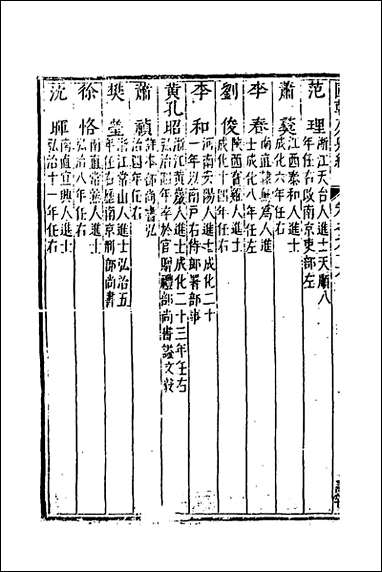 范理 浙江天台人進士天順八
年任右改南京吏部左
蕭 江西泰和人進士
成化六年任右
李春 南直隸 人進
士成化八年任左
劉俊 陝西寶雞人進士
成化十四年任右
李和 河南安陽人進士成化二十
一年以南戶右侍郎署部事
黃孔昭 浙江黃巖人進士成化二十三年任右
弘治四年卒於官贈禮部尚書諡文毅
蕭禎 江西泰和人進士
弘治四年任右
樊瑩 浙江常山人進士弘治五
年任右 南京刑部尚書
徐恪 南直常熟人進士
弘治八年任右
沈暉 南直宜興人進士
弘治十一年任右